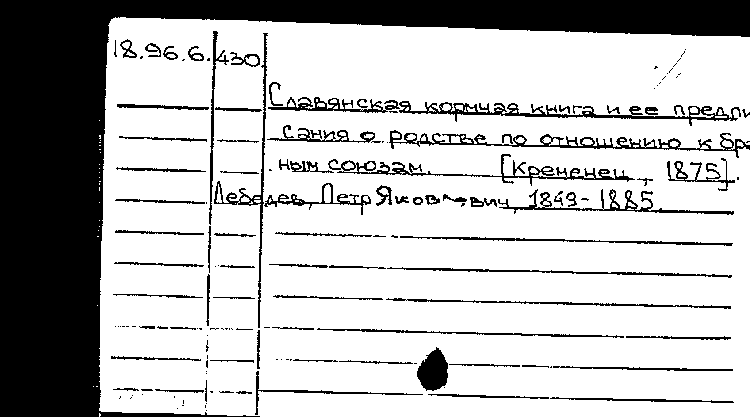 18.96.6.430.
Славянская кормчая книга и ее предпи
сания о родстве по отношению к бра
ным союзам. [Кременец, 1875].
Лебедев, Петр Яковлевич, 1849-1885.